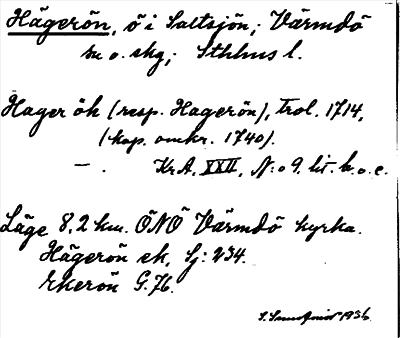 Hägerön, ö i Saltsjön, Värmdö
sn o. skg, Sthlms l.
Hager öh (resp. Hagerön), trol. 1714,
(kop. omkr. 1740).
— . KrA. XXII, N:o 9. lit. b. o. c.
Läge 8,2 km. ÖNÖ Värmdö kyrka.
Hägerön ek, Sj: 234.
Ekerön G. 76.
1936